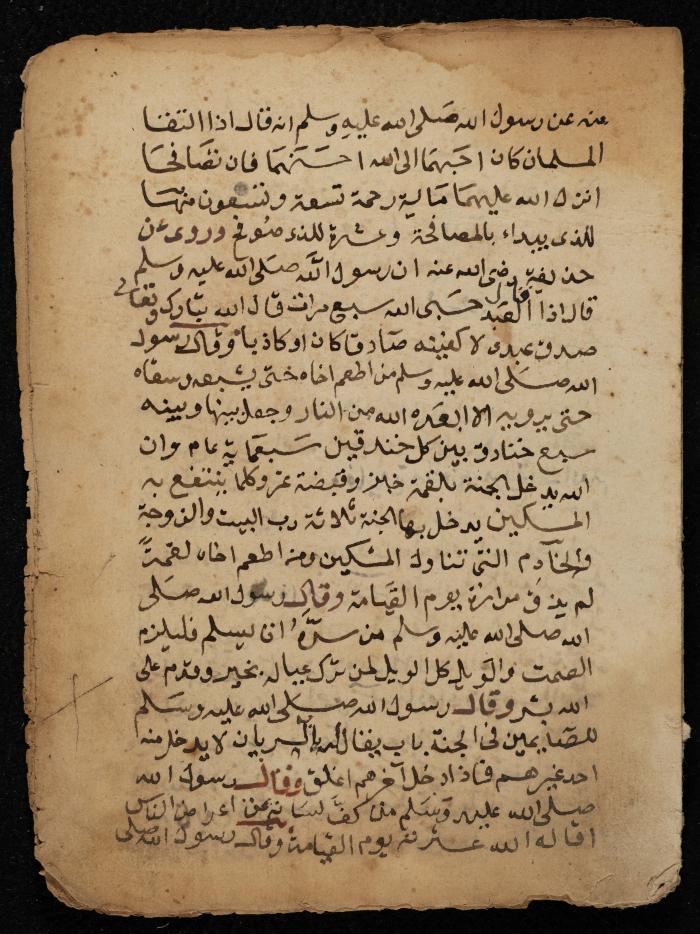 عنه عن رسول الله صَلى الله عليهِ وسلم انه قال اذا التقا
المسلمان كان احَبهمَا الى الله احسَنهمَا فان تصَافحَا
انزل الله عليهمَا مَاية رحمة تسعة وتسعون منهَا
للذى يبداء بالمصافحة وعشرة للذى صُوفح وروى عن
حذيفة رضى الله عنه ان رسول الله صَلى الله عليه وسلم
قال اذا قال العَبد حسَبى الله سبع مرات قال الله تبَارك وتعالى
صدق عبدى لاكفينه صَادقا كان او كاذبا وقال رسول
الله صَلى الله عليه وسلم من اطعم اخاه حتى يشبعه وسقاه
حتى يرويه الا ابعده الله من النار وجعل بينها وبينه
سبع خنادق بين كل خندقين سَبعمَاية عام وان
الله يدخل الجنة بلقمة خبز وقبضة تمر وكلما ينتفع به
المسكين يدخل بها الجنة ثلاثة رب البيت والزوجة
والخَادِم التى تناول المسْكين ومن اطعم اخاه لقمةً
لم يذق مرارة يوم القيَامة وقال رسول الله صَلى
الله صَلى الله عليه وسلم من سرَّهُ ان يسلم فليلزم
الصمت والوَيل كل الويل لمن ترك عياله بخير وقدم على
الله بشر وقال رسول الله صَلى الله عليه وسَلم
للصَايمين فى الجنة باب يقال له الريان لا يدخل منه
احد غيرهم فاذا دخل آخرهم اغلق وقال رسول الله
صلى الله عليه وسَلم من كفَّ لسَانه عن اعراض الناس
اقاله الله عثرته يوم القيامة وقال رسول الله صلى